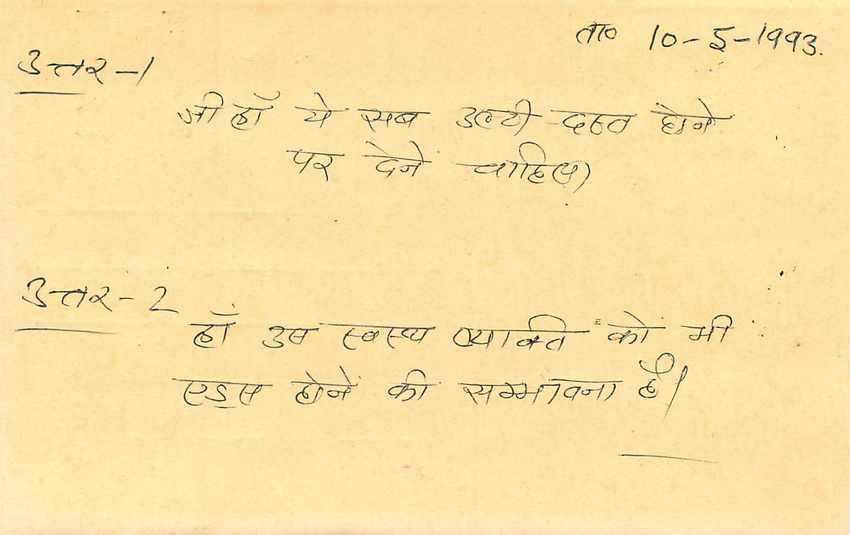 ता० 10-5-1993.
उत्तर-1
जी हाँ ये सब उल्टी दस्त होने
पर देने चाहिए)
उत्तर-2
हाँ उस स्वस्थ व्यक्ति को भी
एड्स होने की सम्भावना है।